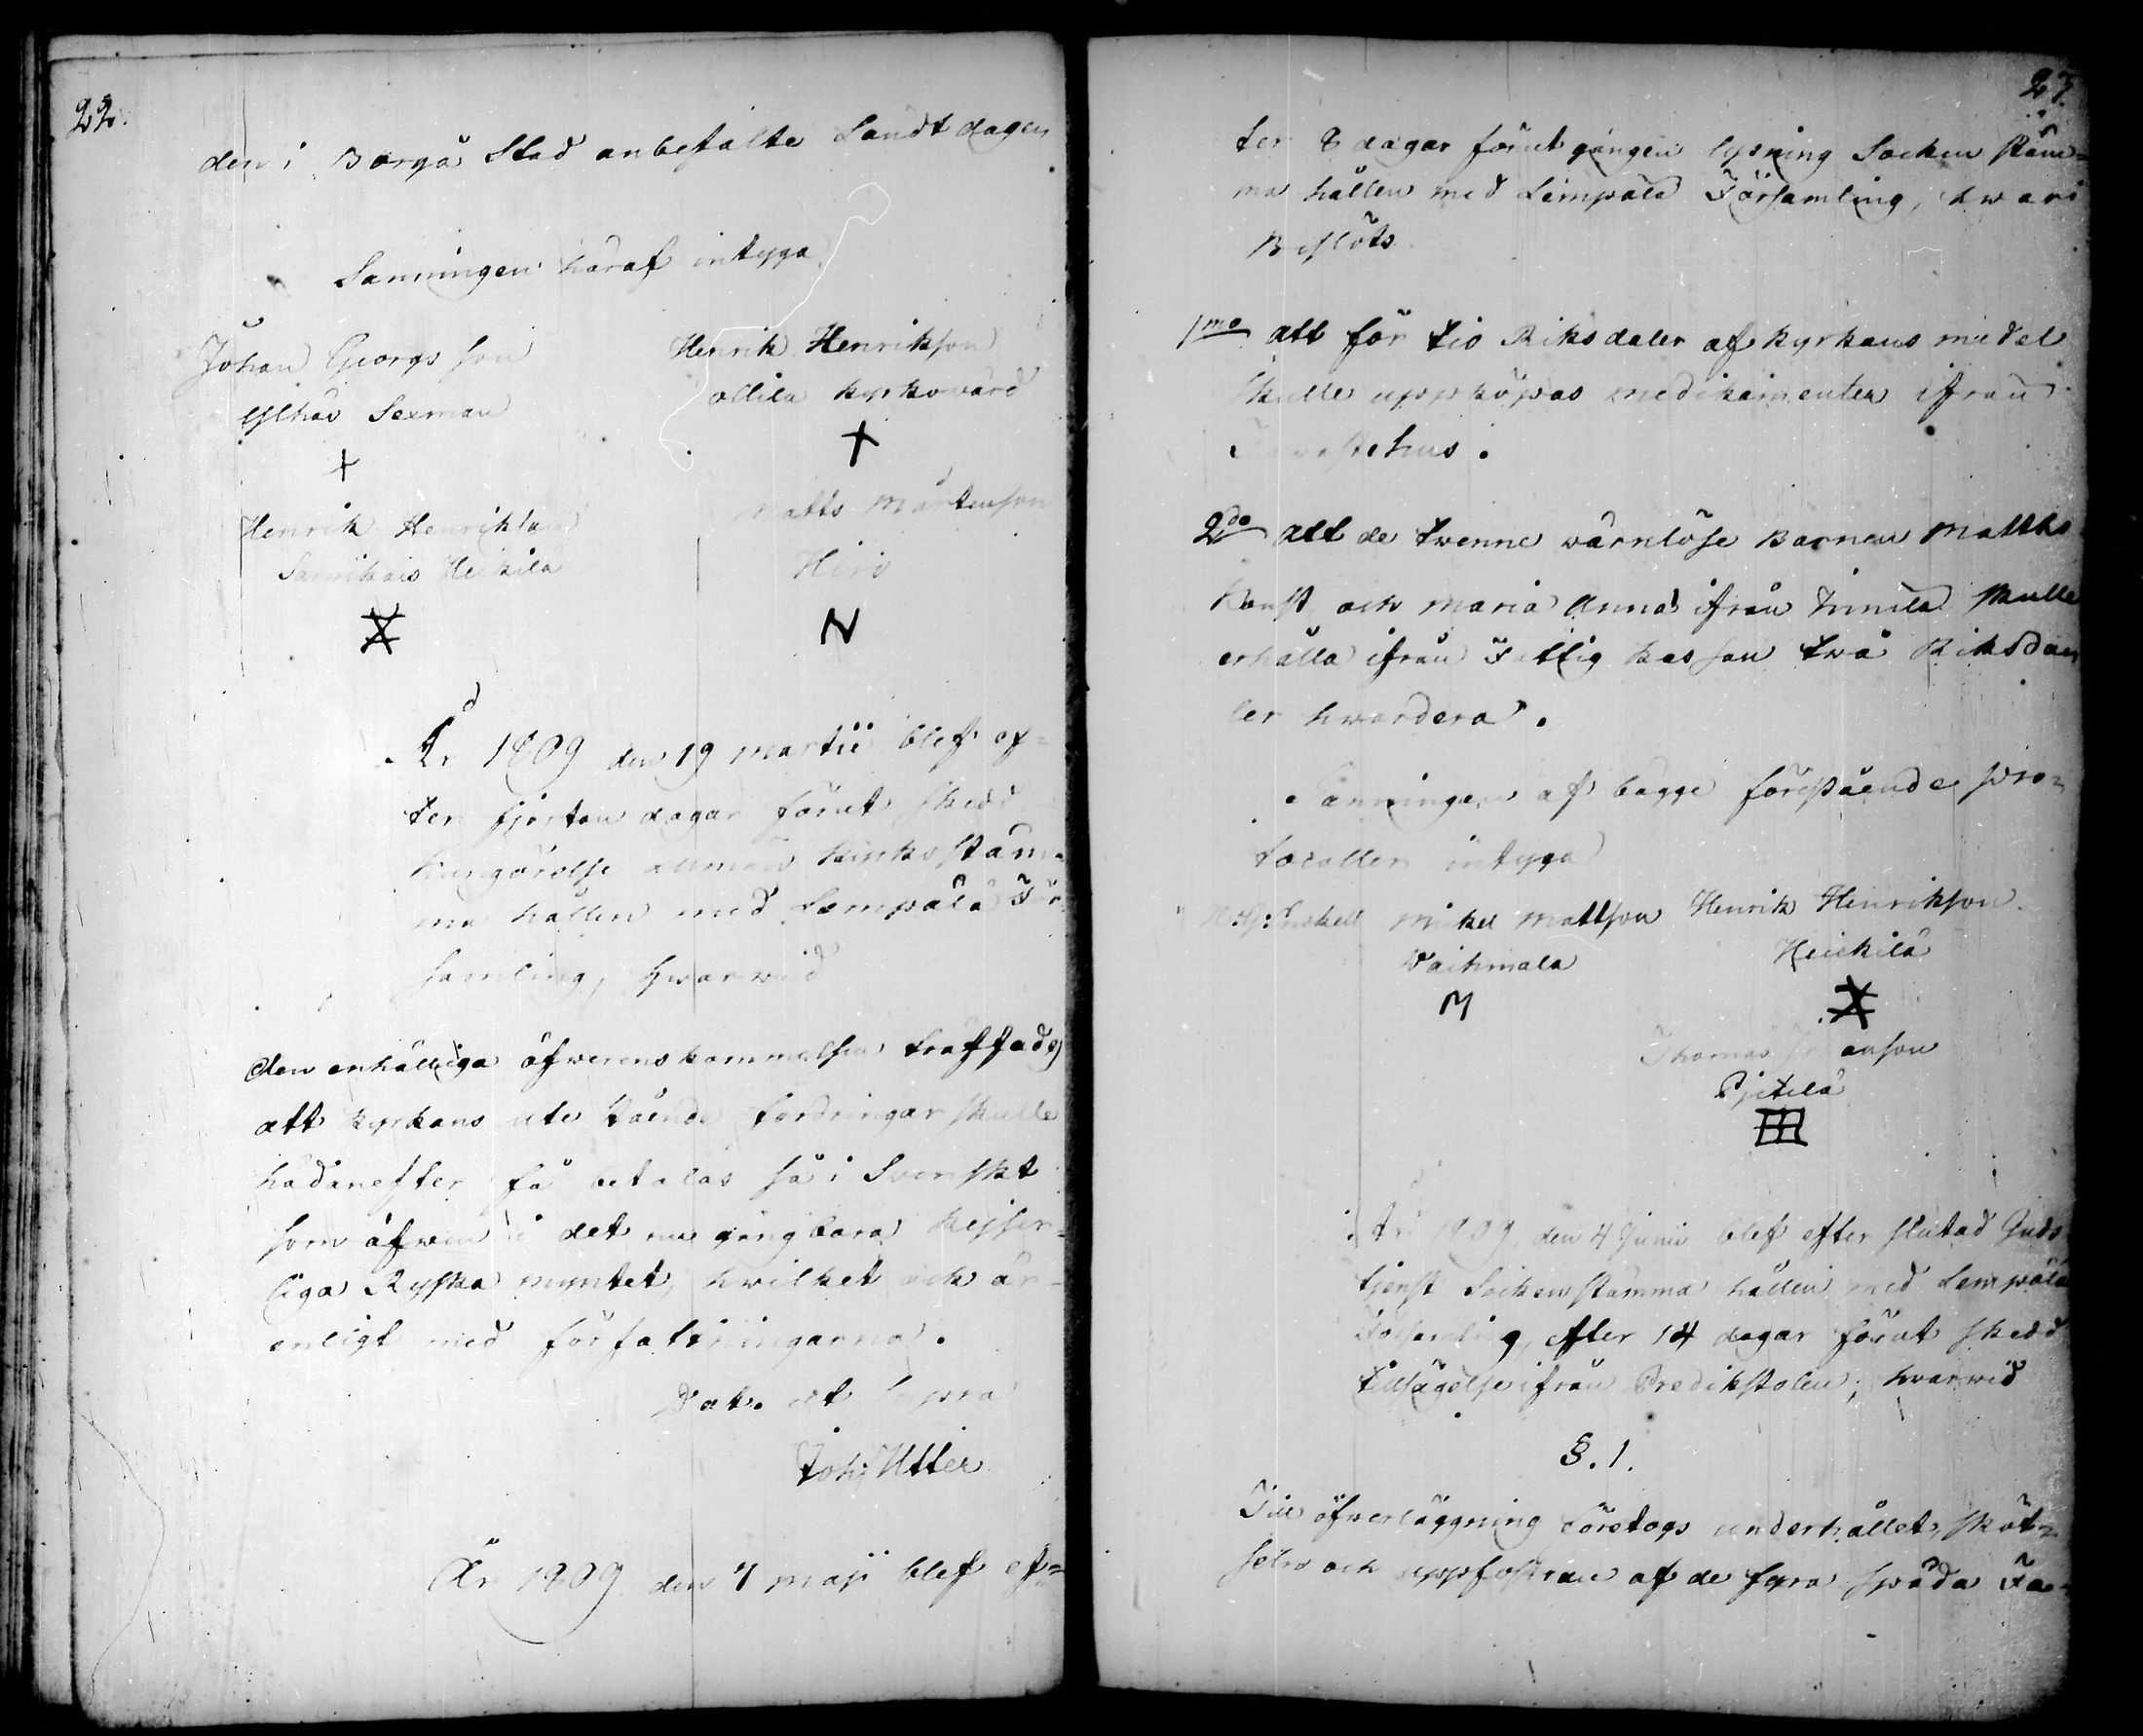 22.
den i Borgå Stad anbefalte Landtdagen
Sanningen häraf intyga
Johan Georgs son
Henrik Henrikson
Sexman
ollila kyrkovärd
+
+
Henrik Henrikson
Matts Mårtenson
Heikila
Hiro
N
År 1809 den 19 Martii blef ef=
ter fjorton dagar förut skedd
kungörelse allmän kyrkostäm=
ma hållen med Lempälä För
samling, hwarwid
den enhälliga öfwerenskommelsen träffades
att kyrkans ute stående fordringar skulle
hädanefter få betalas så i Svenskt
som äfwen i det nu gångbara Kejser=
liga Ryska myntet, hvilket och är
enligt med författningarna.
Dat. ut supra
Joh: Utter
År 1809 den 7 Maji blef ef=
23.
ter 8 dagar förut gången lysning Socken stäm=
ma hållen med Lempälä Församling, hwari
Beslöts
1mo att för tio Riksdaler af kyrkans medel
skulle uppköpas medikamenter ifrån
Tavastehus.
2do att de twenne wärnlöse Barnen Matths
och Maria Anna ifrån skulle
erhålla ifrån Fattig kassan två Riksda
ler hwardera.
Sanningen af bägge förestående pro=
tocoller intyga
Mickel Mattson
Henrik Henrikson
Vaihmala
Heickilä
M
Thomas
Pjetilä
År 1809 den 4 Junii blef efter slutad Guds
tjenst Sockenstämma hållen med Lempälä
Församling, efter 14 dagar förut skedd
tillsägelse ifrån Predikstolen; hwarwid
§. 1.
Till öfverläggning företogs underhållet, sköt=
seln och uppfostran af de fyra späda Fa=